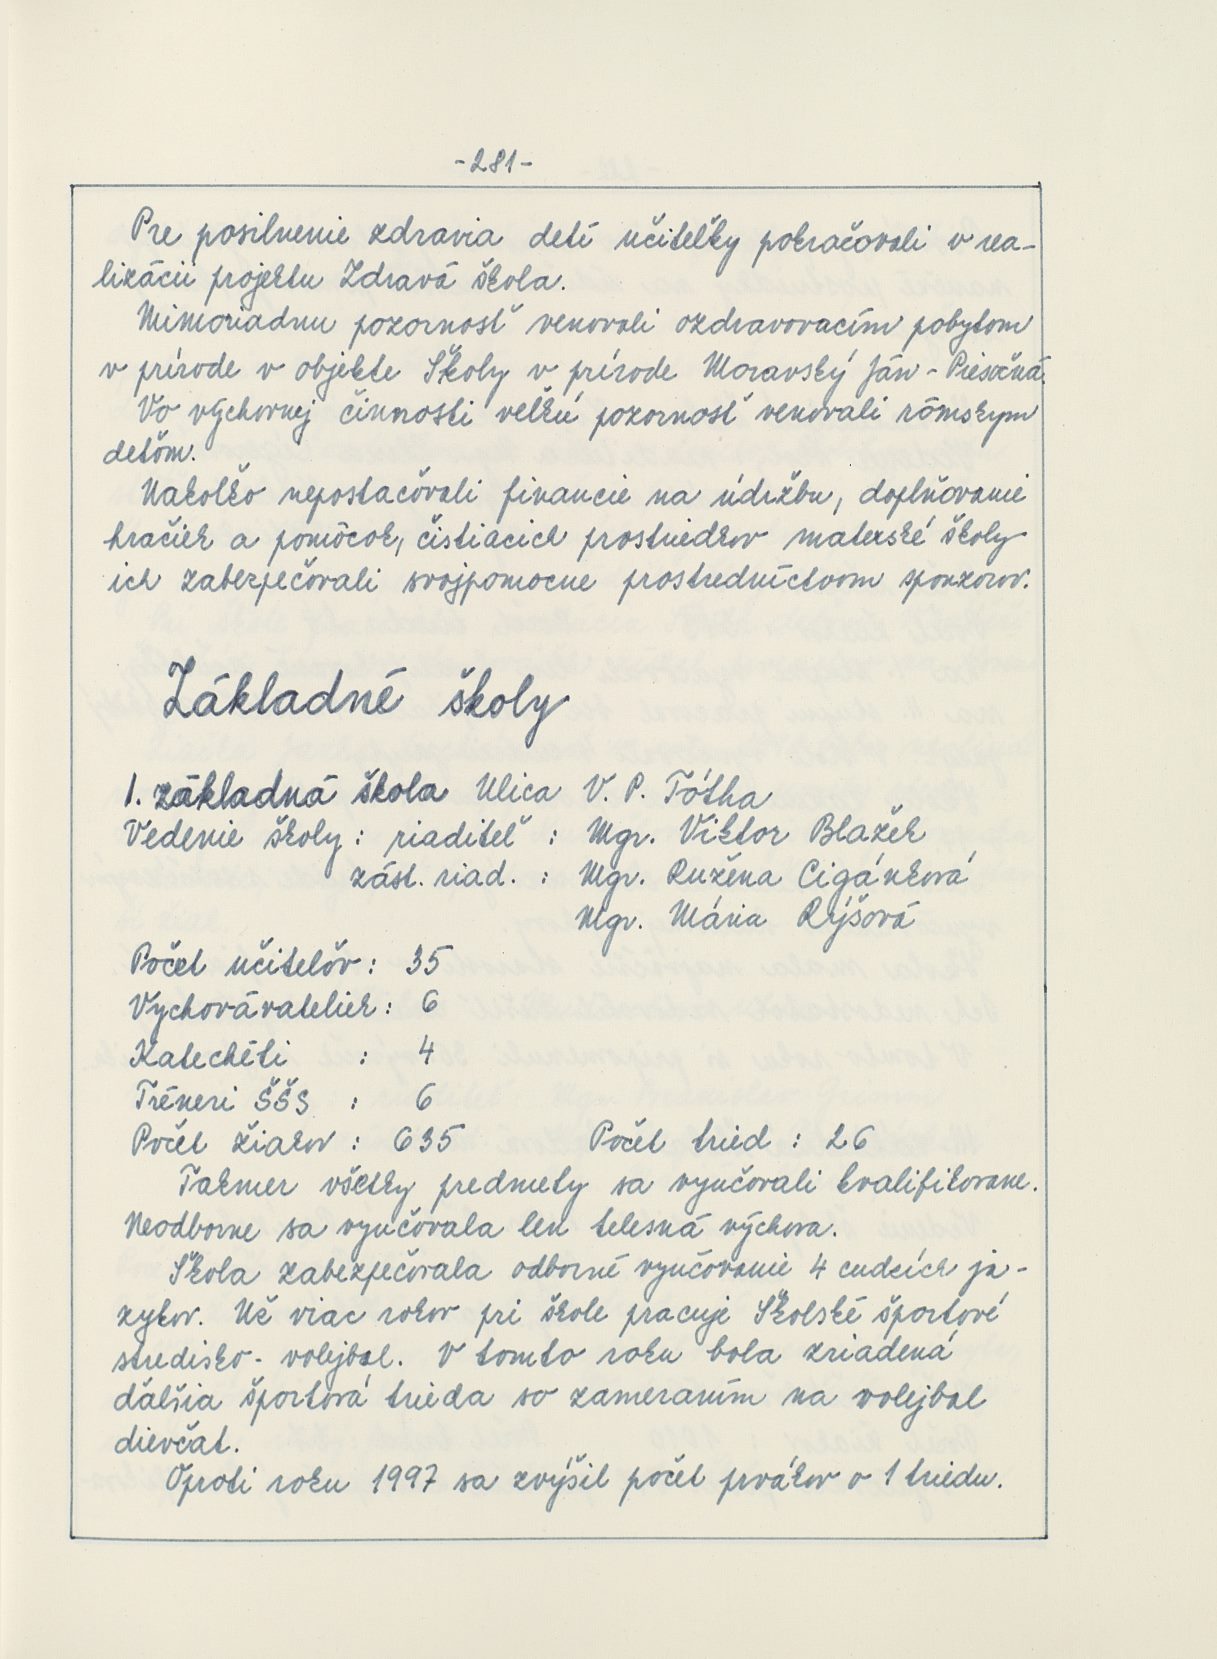 -281-
Pre posilnenie zdravia detí učiteľky pokračovali v rea-
lizácii projektu Zdravá škola.
Mimoriadnu pozornosť venovali ozdravovacím pobytom
v prírode v objekte Školy v prírode Moravský Ján - Piesočná.
Vo výchovnej činnosti veľkú pozornosť venovali rómskym
deťom.
Nakoľko nepostačovali financie na údržbu, doplňovanie
hračiek a pomôcok, čistiacich prostriedkov materské školy
ich zabezpečovali svojpomocne prostredníctvom sponzorov.
Základné školy
1. základná škola Ulica V. P. Tótha
Vedenie školy : riaditeľ : Mgr. Viktor Blažek
zást. riad. : Mgr. Ružena Cigánková
Mgr. Mária Ryšová
Počet učiteľov : 35
Vychovávateliek : 6
Katechéti : 4
Tréneri ŠŠS : 6
Počet žiakov : 635 Počet tried : 26
Takmer všetky predmety sa vyučovali kvalifikovane.
Neodborne sa vyučovala len telesná výchova.
Škola zabezpečovala odborné vyučovanie 4 cudzích ja-
zykov. Už viac rokov pri škole pracuje Školské športové
stredisko - volejbal. V tomto roku bola zriadená
ďalšia športová trieda so zameraním na volejbal
dievčat.
Oproti roku 1997 sa zvýšil počet prvákov o 1 triedu.